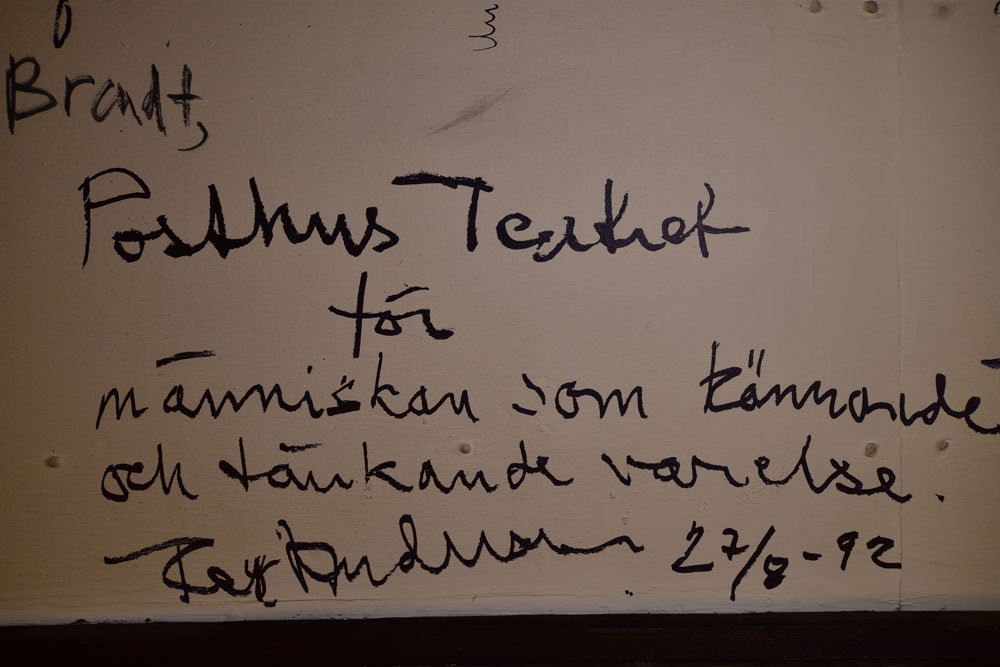 Brandt,
Posthus Teatret
för
människan som kännande
och tänkande varelse.
27/8-92